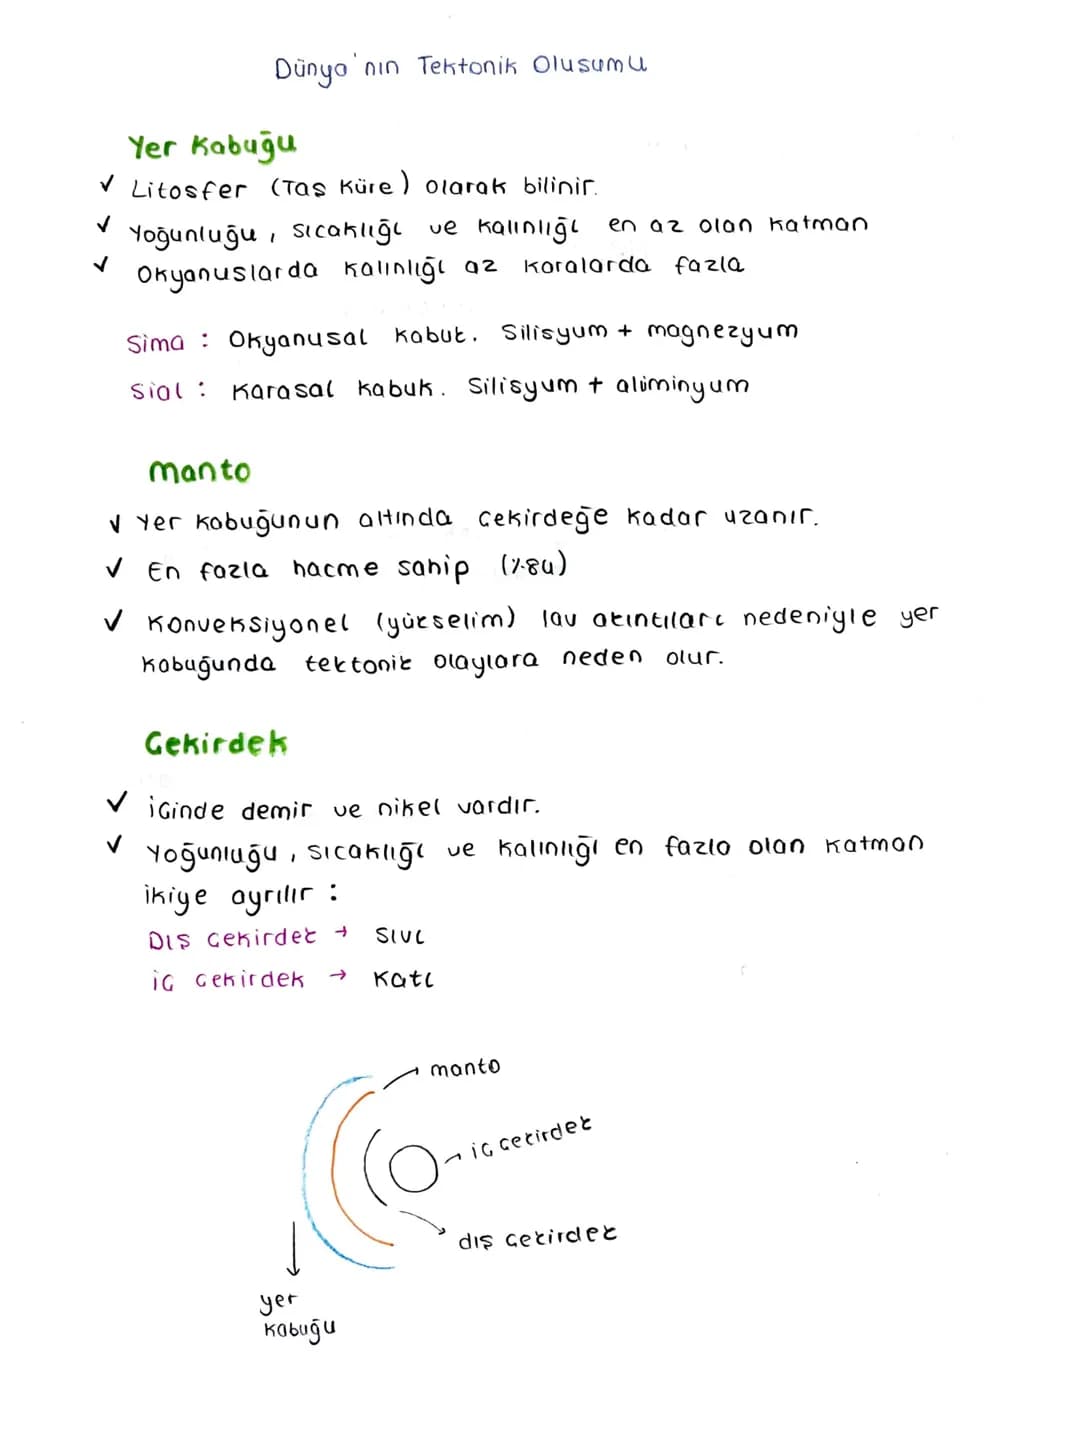 Dünya'nın Tektonik Olusumu
Yer Kabuğu
✓ Litosfer (Taş Küre) olarak bilinir.
✓ Yoğunluğu, sıcaklığı ve kalınlığı en az olan katman
✓ Okyanuslarda kalınlığı az karalarda fazla
Sima : Okyanusal kabuk. Silisyum + magnezyum
Sial : Karasal kabuk. Silisyum + alüminyum
Manto
✓ Yer kabuğunun altında çekirdeğe kadar uzanır.
✓ En fazla hacme sahip (%84)
✓ Konveksiyonel (yükselim) lav akıntıları nedeniyle yer
kabuğunda tektonik olaylara neden olur.
Çekirdek
✓ içinde demir ve nikel vardır.
✓ Yoğunluğu, sıcaklığı ve kalınlığı en fazla olan katman
ikiye ayrılır :
Dış çekirdek → sıvı
iç çekirdek → katı
manto
iç çekirdek
dış çekirdek
yer
kabuğu